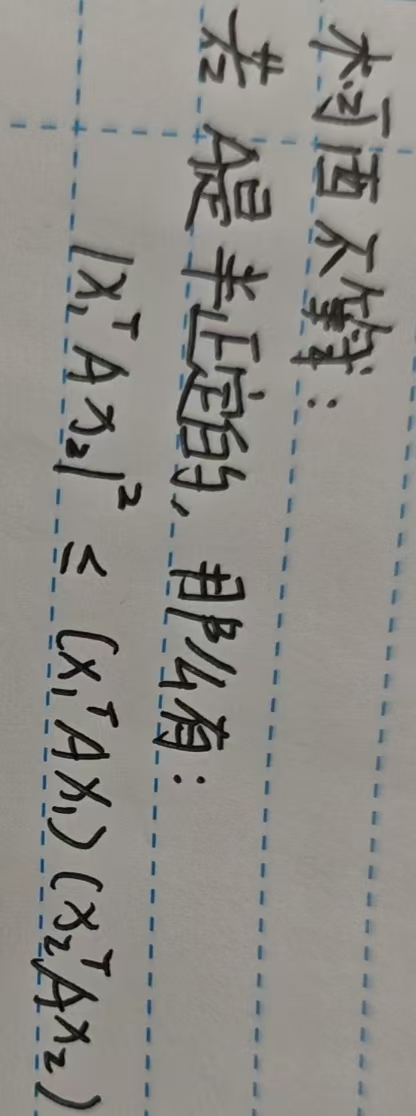 柯西不等式:
若A是半正定的,那么有:
|x₁ᵀAx₂|² ≤ (x₁ᵀAx₁)(x₂ᵀAx₂)